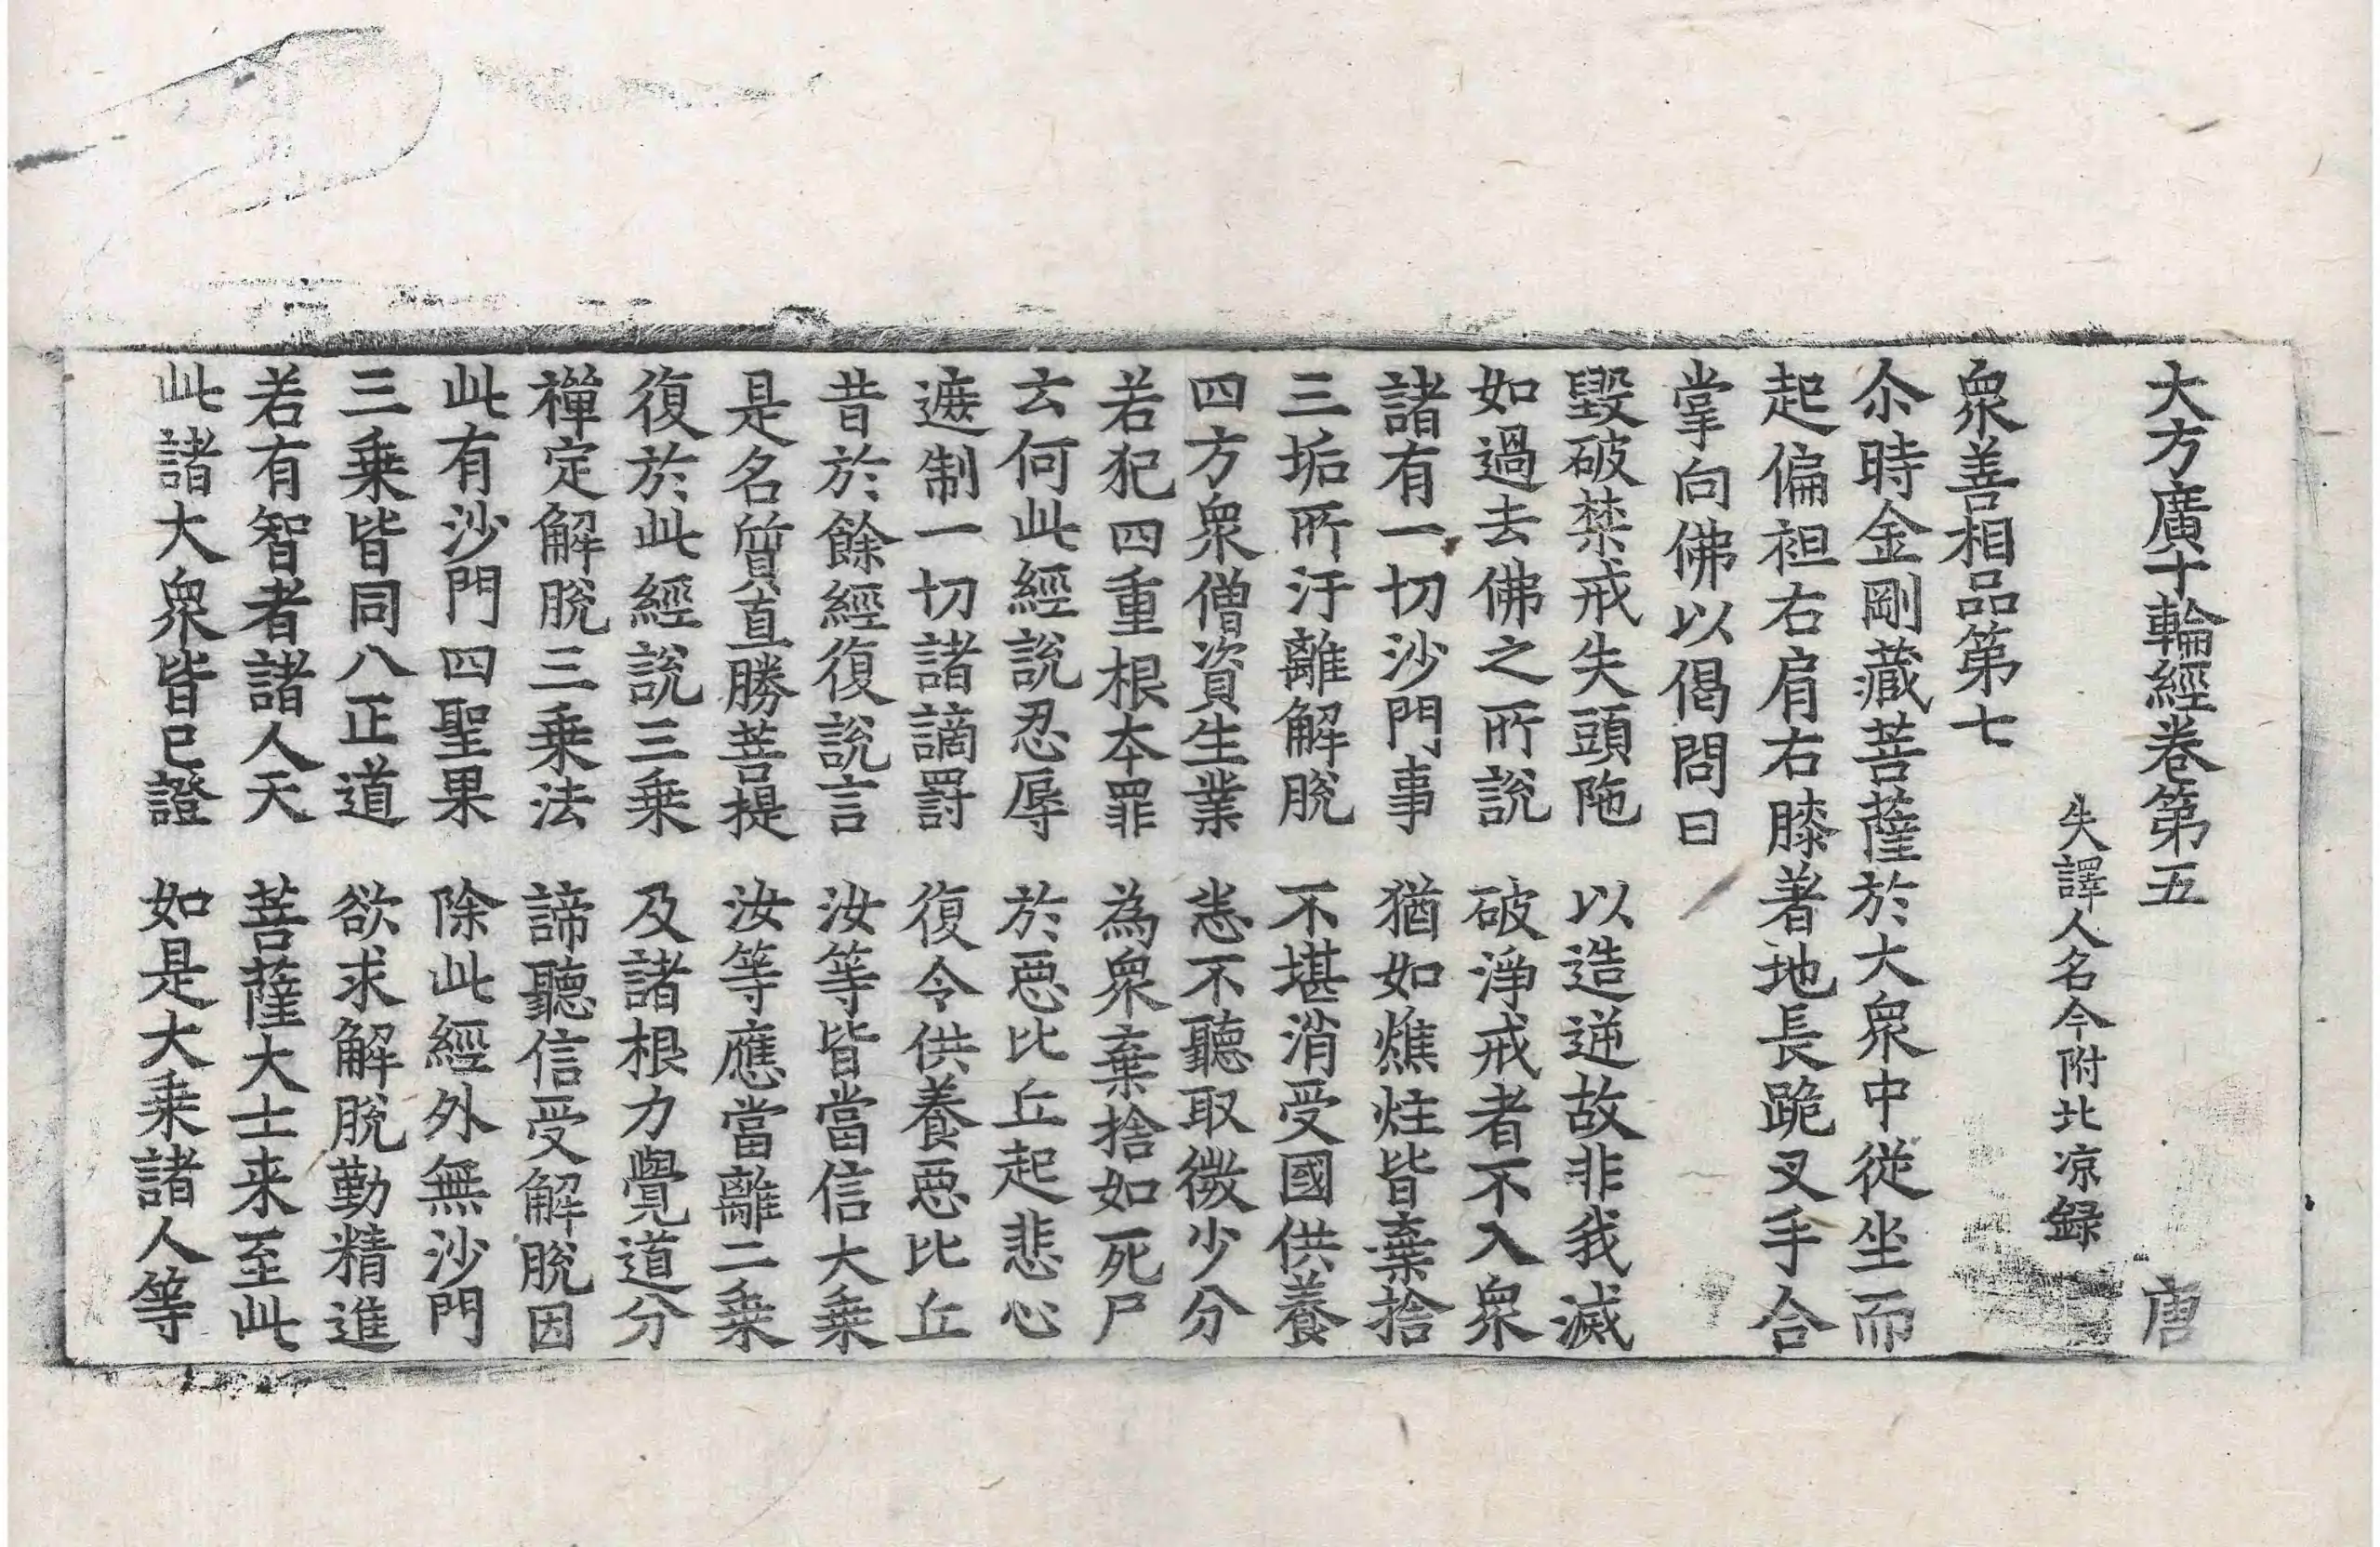 大方廣十輪經卷第五 唐
失譯人名今附北涼録
衆善相品第七
尒時金剛藏菩薩於大衆中從坐而
起偏袒右肩右膝著地長跪叉手合
掌向佛以偈問曰
毀破禁戒失頭陁 以造逆故非我滅
如過去佛之所說 破淨戒者不入衆
諸有一切沙門事 猶如燋炷皆棄捨
三垢所汙離解脫 不堪消受國供養
四方衆僧資生業 悉不聽取微少分
若犯四重根本罪 為衆棄捨如死尸
云何此經說忍辱 於惡比丘起悲心
遮制一切諸謫罸 復令供養惡比丘
昔於餘經復說言 汝等皆當信大乗
是名質直勝菩提 汝等應當離二乗
復於此經說三乗 及諸根力覺道分
禪定解脫三乗法 諦聽信受解脫因
此有沙門四聖果 除此經外無沙門
三乗皆同八正道 欲求解脫勤精進
若有智者諸人天 菩薩大士来至此
此諸大衆皆已證 如是大乗諸人等